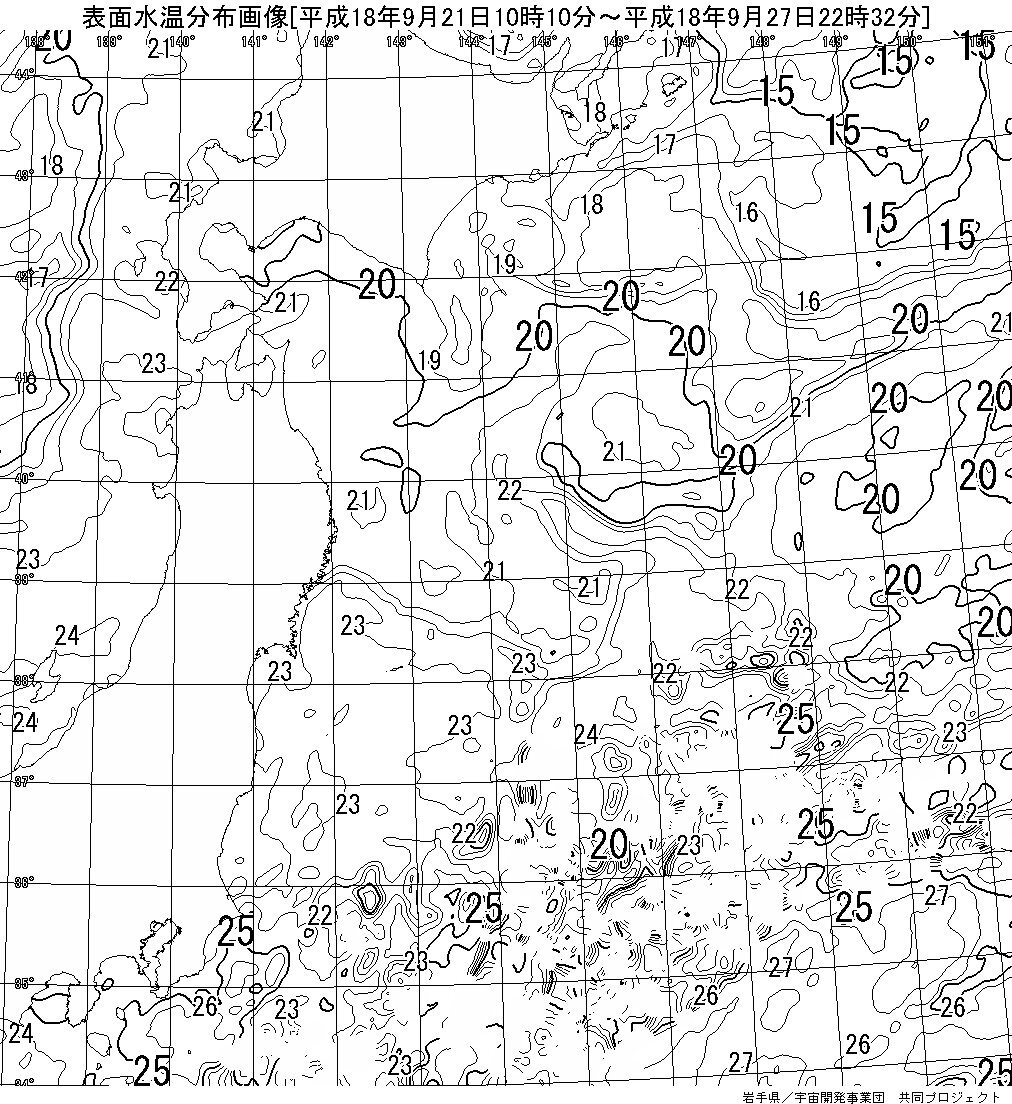 表面水温分布画像[平成18年9月21日10時10分～平成18年9月27日22時32分]
20 21 140 141 142 143 144 17 145 146 17 147° 148° 149° 150° 15
44° 15 15
21 18 15
18 17
43° 21 18 16 15 15
42° 17 22 20 19 20 16 20 21
21 20 20
41° 18 23 19 20 20
21
40° 21 20 20
21 22 20
23 21 21 20
39° 22
24 23 22 20
23 23 22 22
38°
24 23 24 25 23
37° 23 22 20 23 25 22
36° 22 25 25 27
25 23 27
35° 26 23 26 26
24 26
25 23 27 25
34°
岩手県／宇宙開発事業団　共同プロジェクト